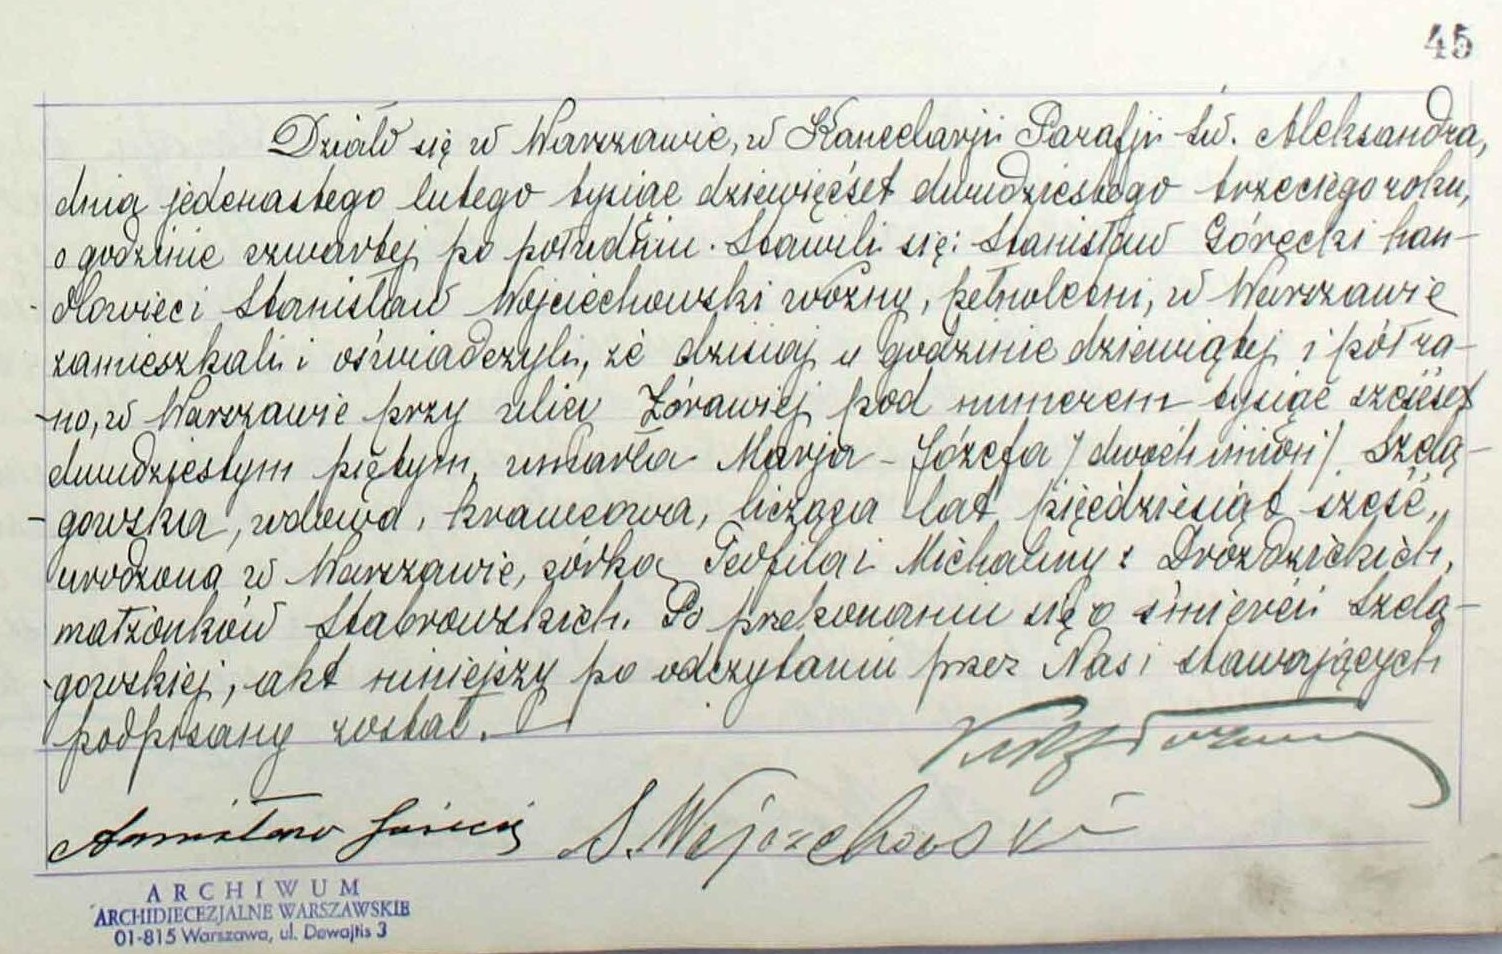 45
Działo się w Warszawie, w Kancelarji Parafji św. Aleksandra,
dnia jedenastego lutego tysiąc dziewięćset dwudziestego trzeciego roku,
o godzinie czwartej po południu. Stawili się: Stanisław Górecki han-
dlowiec i Stanisław Wojciechowski woźny, pełnoletni, w Warszawie
zamieszkali i oświadczyli, że dzisiaj o godzinie dziewiątej i pół ra-
no, w Warszawie przy ulicy Żórawiej pod numerem tysiąc sześćset
dwudziestym piętym, umarła Marja-Józefa /dwóch imion/ Szelą-
gowska, wdowa, krawcowa, licząca lat pięćdziesiąt sześć,
urodzona w Warszawie, córka Teofila i Michaliny z Droździckich,
małżonków Stabrowskich. Po przekonaniu się o śmierci Szelą-
gowskiej, akt niniejszy po odczytaniu przez Nas i stawających
podpisany został.
Stanisław Górecki S. Wojciechowski
ARCHIWUM
ARCHIDIECEZJALNE WARSZAWSKIE
01-815 Warszawa, ul. Dewajtis 3